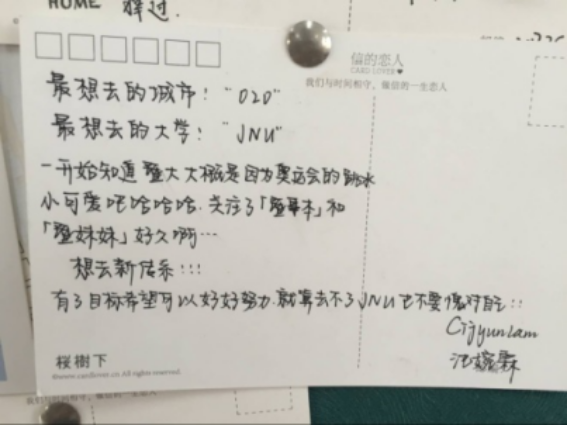 HOME 择过.
信的恋人
CARD LOVER♥
我们与时间相守，做信的一生恋人
最想去的城市："020"
最想去的大学："JNU"
一开始知道暨大大概是因为奥运会的跳水
小可爱吧哈哈哈.关注了「暨草本」和
「暨妹妹」好久啊…
想去新传系!!!
有了目标希望可以好好努力.就算去不了JNU也不要 对自己!!
Cijyunlam
桜樹下
©www.cardlover.cn All rights reserved.